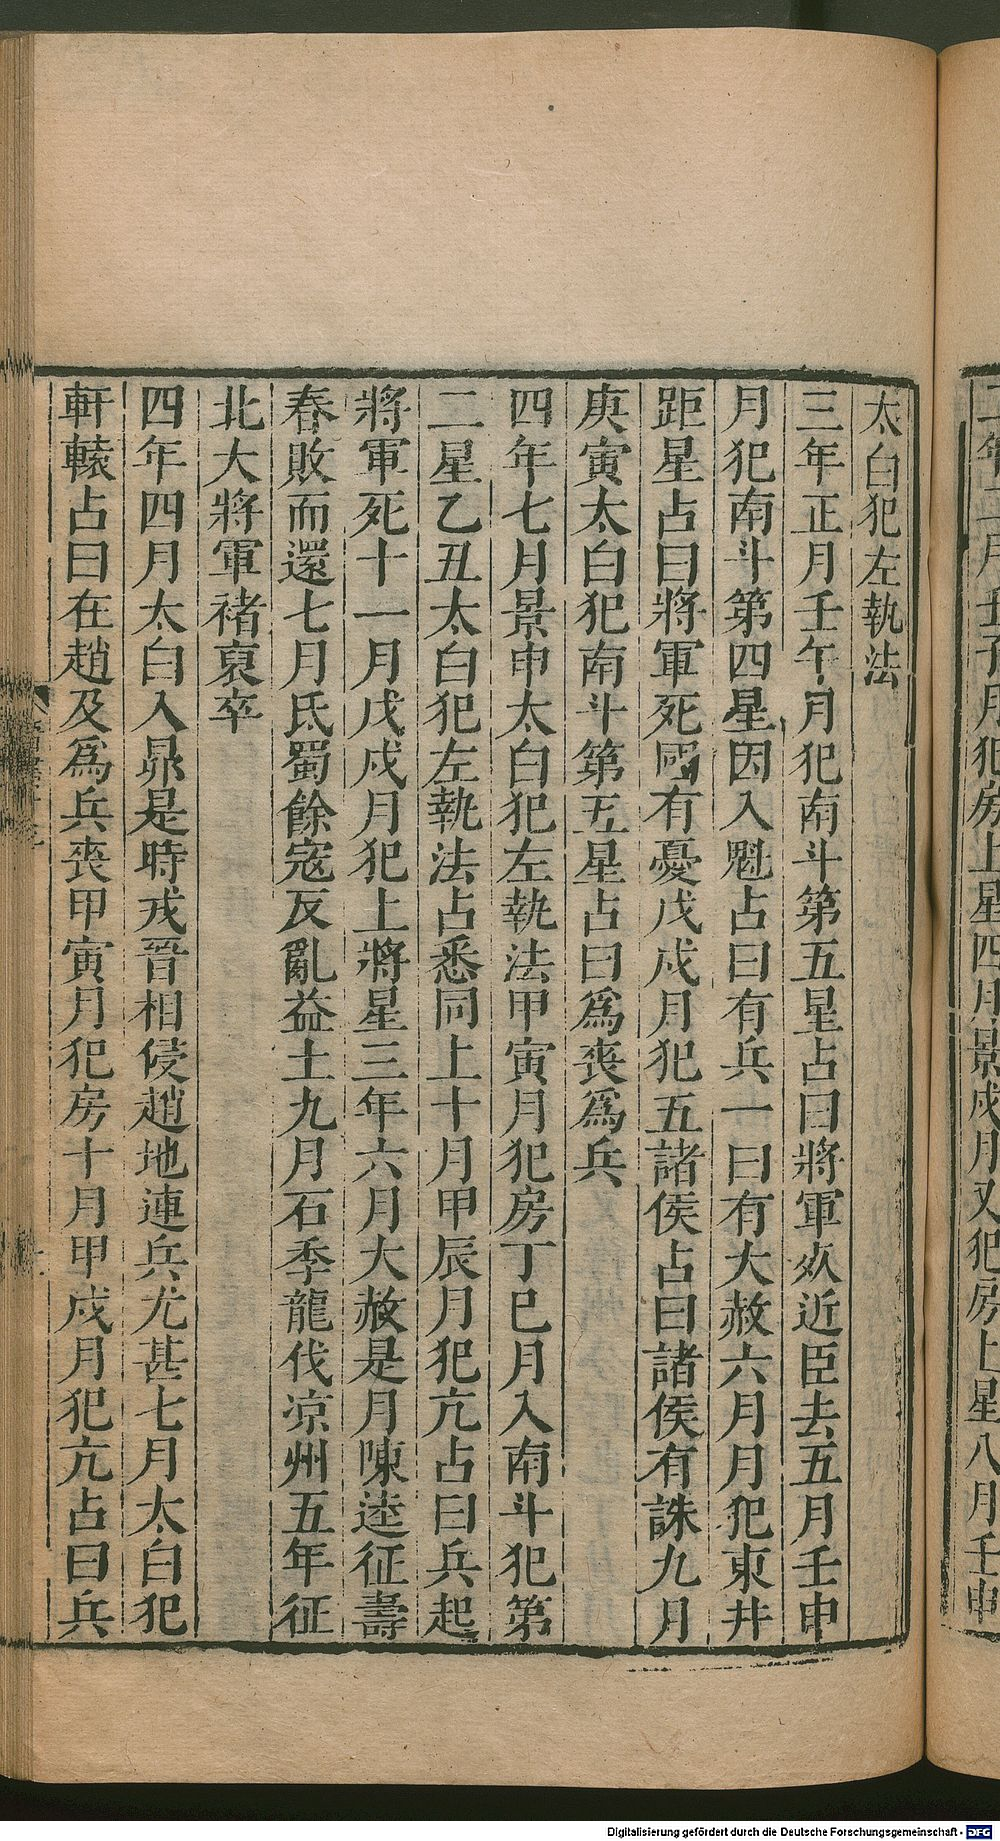 二年二月壬子月犯房上星四月景戌月又犯房上星八月壬申
太白犯左執法
三年正月壬午月犯南斗第五星占曰將軍死近臣去五月壬申
月犯南斗第四星因入魁占曰有兵一曰有大赦六月月犯東井
距星占曰將軍死國有憂戊戌月犯五諸侯占曰諸侯有誅九月
庚寅太白犯南斗第五星占曰爲喪爲兵
四年七月景申太白犯左執法甲寅月犯房丁巳月入南斗犯第
二星乙丑太白犯左執法占悉同上十月甲辰月犯亢占曰兵起
將軍死十一月戊戌月犯上將星三年六月大赦是月陳逵征壽
春敗而還七月氐蜀餘寇反亂益土九月石季龍伐凉州五年征
北大將軍褚裒卒
四年四月太白入昴是時戎晉相侵趙地連兵尤甚七月太白犯
軒轅占曰在趙及爲兵喪甲寅月犯房十月甲戌月犯亢占曰兵
Digitalisierung gefördert durch die Deutsche Forschungsgemeinschaft - DFG